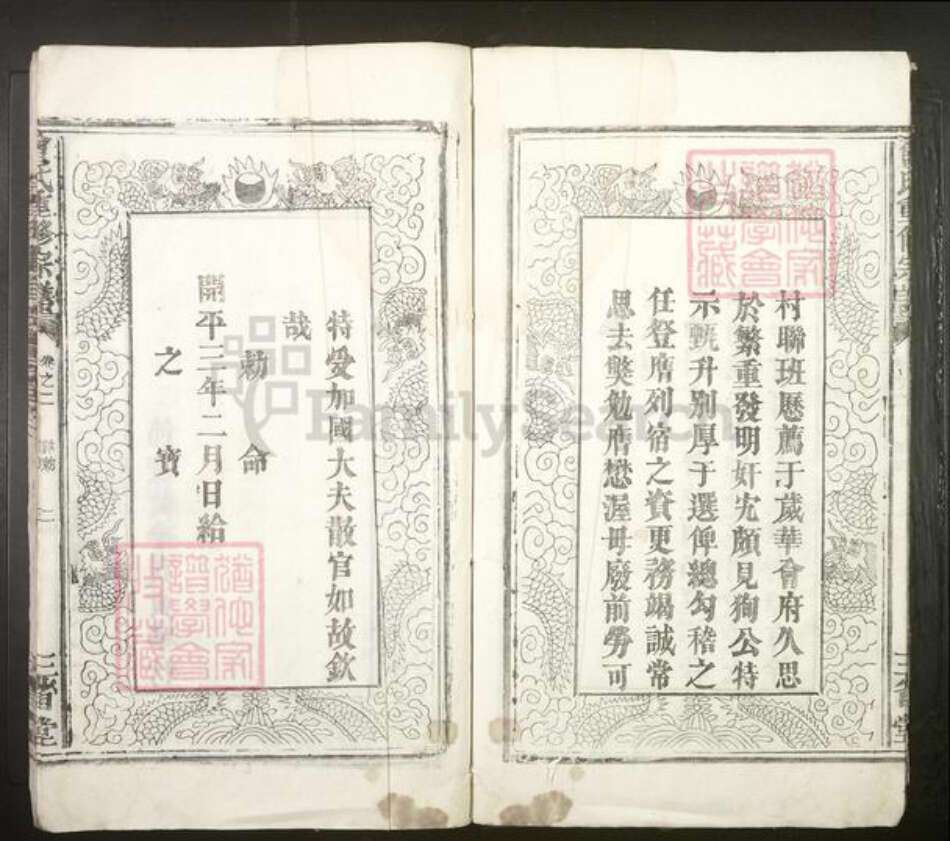 村聯班歷薦于歲華會府久思
於繁重發明奸宄頗見狥公特
示甄升别厚于選俾總勾稽之
任登膺列宿之資更務竭誠常
思去獘勉膺懋渥毋廢前勞可
特受加國大夫散官如故欽
哉
勅命
開平三年二月日給
之寶
氏重修宗譜
卷之二
二
三省堂
FamilySearch